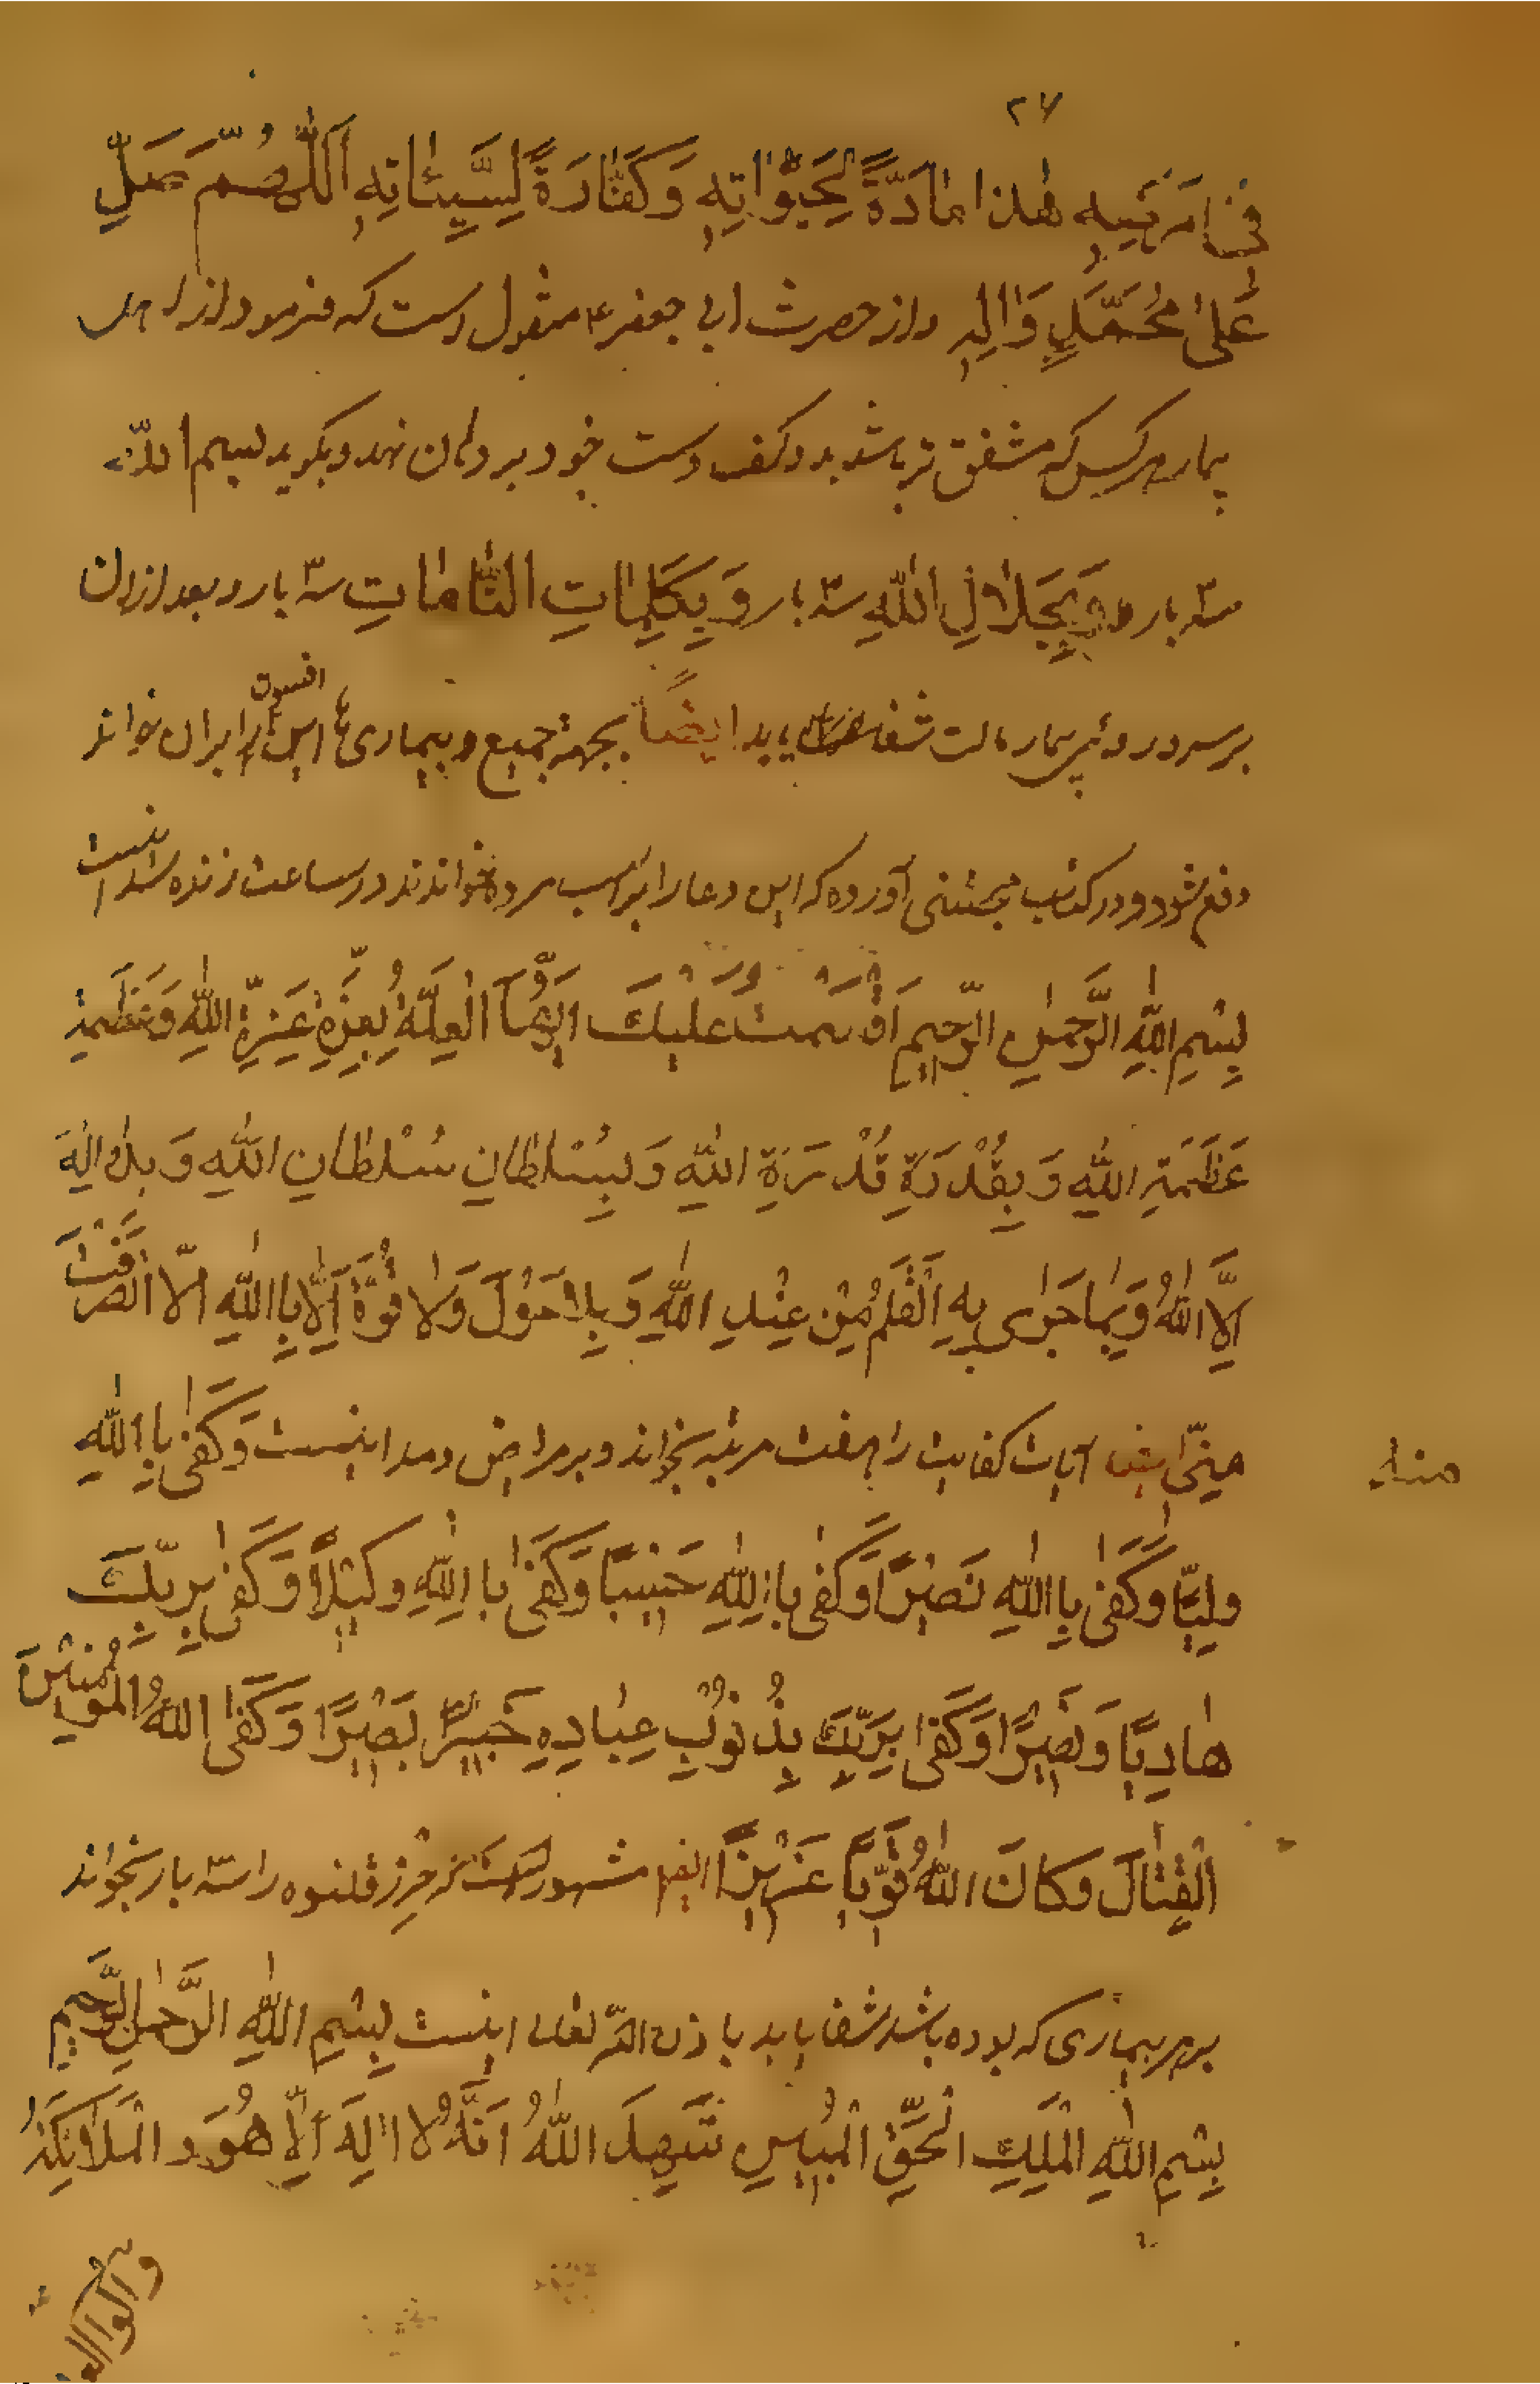 ۲۷
فی اَمرَضِیهِ هٰذا مٰادَّةً لِحَیٰوٰاتِهِ وَکَفّٰارَةً لِسَیِّئٰاتِهِ اَللّٰهُمَّ صَلِّ
عَلیٰ مُحَمَّدٍ وَاٰلِهِ واز حضرت ابی جعفر ع منقول است که فرمود از اهل
بیمار هرکس که مشفق تر باشد بدو کف دست خود بر دهان نهد و بکوید بسم الله
سه بار و وَبِجَلاٰلِ اللّٰهِ سه بار وَبِکَلِمٰاتِ التّٰامّٰاتِ سه بار و بعد ازان
بر سر و روئی بیمار مالد شفا یابد ایضاً بجهة جمیع بیماری ها این افسون را بران خواند
دفع شود و در کتاب مجتنی آورده که این دعا را بر اسب مرده خواندند در ساعت زنده شد اینست
بِسْمِ اللّٰهِ الرَّحْمٰنِ الرَّحِیمِ اَقْسَمْتُ عَلَیْكَ اَیَّتُهَا الْعِلَّةُ بِعِزَّةِ عِزَّةِ اللّٰهِ وَبِعَظَمَةِ
عَظَمَةِ اللّٰهِ وَبِقُدْرَةِ قُدْرَةِ اللّٰهِ وَبِسُلْطٰانِ سُلْطٰانِ اللّٰهِ وَبِلاٰ اِلٰهَ
اِلَّا اللّٰهُ وَبِمٰا جَرٰی بِهِ الْقَلَمُ مِنْ عِنْدِ اللّٰهِ وَبِلاٰ حَوْلَ وَلاٰ قُوَّةَ اِلّٰا بِاللّٰهِ اِلّا انْصَرَفْتَ
مِنّی ایضاً آیات کفایت را هفت مرتبه بخواند و بر مرایض دمد اینست وَکَفیٰ بِاللّٰهِ
منه
وَلِیًّا وَکَفیٰ بِاللّٰهِ نَصِیْرًا وَکَفیٰ بِاللّٰهِ حَسِیْبًا وَکَفیٰ بِاللّٰهِ وَکِیْلاً وَکَفیٰ بِرَبِّكَ
هٰادِیًا وَنَصِیْرًا وَکَفیٰ بِرَبِّكَ بِذُنُوْبِ عِبٰادِهِ خَبِیْرًا بَصِیْرًا وَکَفَی اللّٰهُ الْمُؤْمِنِیْنَ
الْقِتٰالَ وَکٰانَ اللّٰهُ قَوِیًّا عَزِیْزًا ایضا مشهور است که حرز قلنسوه را سه بار بخواند
بر هر بیماری که بوده باشد شفا یابد باذن الله تعالی اینست بِسْمِ اللّٰهِ الرَّحْمٰنِ الرَّحِیْمِ
بِسْمِ اللّٰهِ الْمَلِكِ الْحَقِّ الْمُبِیْنِ شَهِدَ اللّٰهُ اَنَّهُ لاٰ اِلٰهَ اِلّٰا هُوَ وَالْمَلاٰئِکَةُ